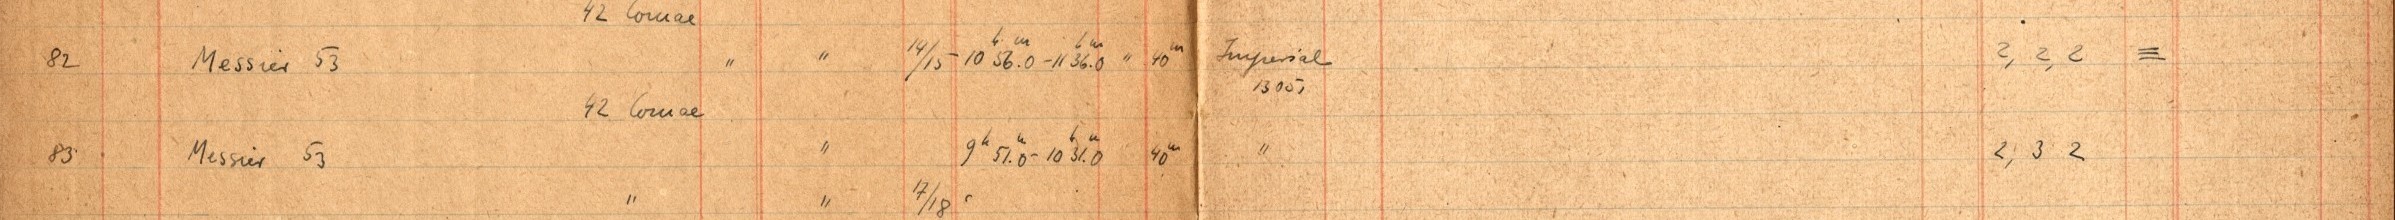 42 Comae
82 Messier 53 " " 14/15 - 10h 56.m0 - 11h 36.m0 " 40m Imperial 2, 2, 2 ≡
1305,
42 Comae
83 Messier 53 " 9h 51.m0 - 10h 31.m0 40m " 2, 3 2
" " 17/18